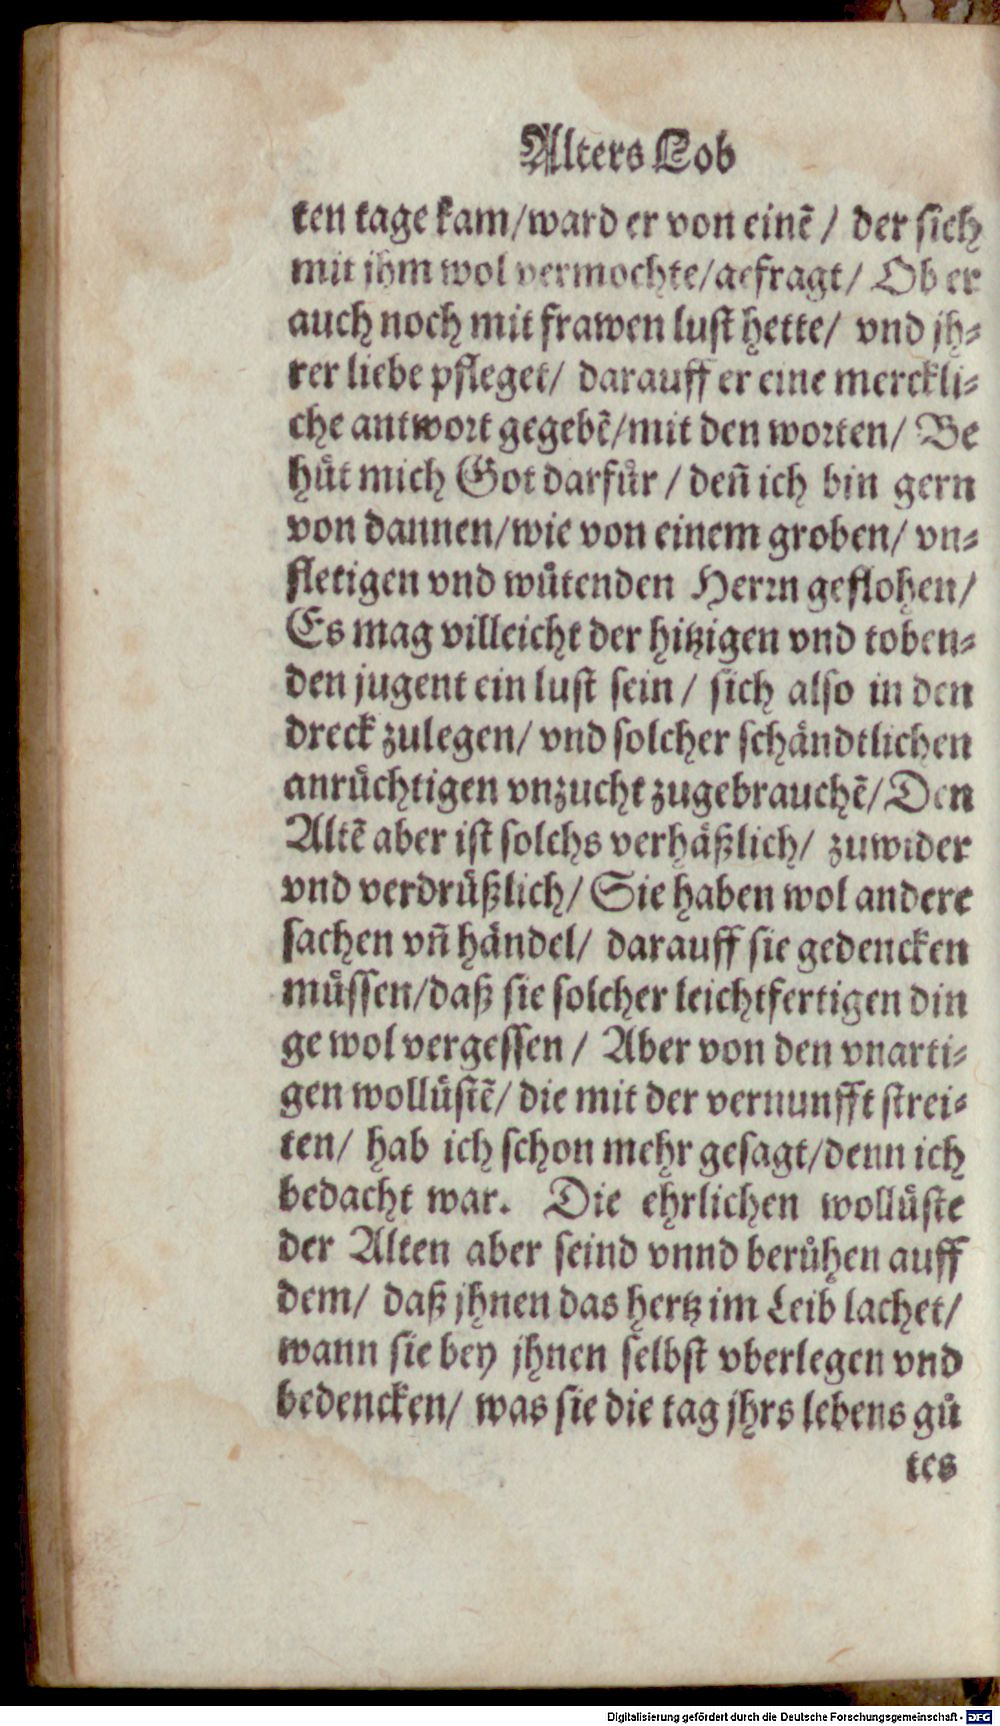 Alters Lob
ten tage kam/ward er von einẽ / der sich
mit jhm wol vermochte/gefragt/ Ob er
auch noch mit frawen lust hette/ vnd jh⸗
rer liebe pfleget/ darauff er eine merckli⸗
che antwort gegebẽ/mit den worten/ Be
huͤt mich Got darfuͤr / deñ ich bin gern
von dannen/wie von einem groben/ vn⸗
fletigen vnd wuͤtenden Herrn geflohen/
Es mag villeicht der hitzigen vnd toben⸗
den jugent ein lust sein / sich also in den
dreck zulegen/ vnd solcher schaͤndtlichen
anruͤchtigen vnzucht zugebrauchẽ/ Den
Altẽ aber ist solchs verhaͤßlich/ zuwider
vnd verdruͤßlich/ Sie haben wol andere
sachen vñ haͤndel/ darauff sie gedencken
muͤssen/daß sie solcher leichtfertigen din
ge wol vergessen / Aber von den vnarti⸗
gen wolluͤstẽ/ die mit der vernunfft strei⸗
ten/ hab ich schon mehr gesagt/denn ich
bedacht war. Die ehrlichen wolluͤste
der Alten aber seind vnnd beruͤhen auff
dem/ daß jhnen das hertz im Leib lachet/
wann sie bey jhnen selbst vberlegen vnd
bedencken/ was sie die tag jhrs lebens guͤ
tes
Digitalisierung gefördert durch die Deutsche Forschungsgemeinschaft - DFG